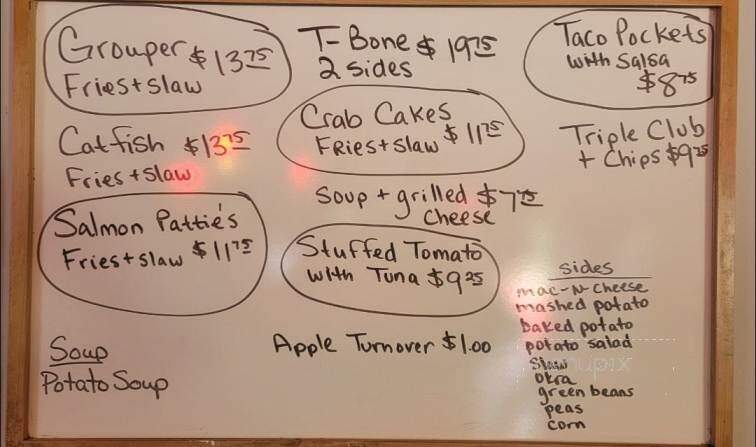 Grouper $13.75
Fries + slaw
Catfish $13.75
Fries + slaw
Salmon Pattie's
Fries + slaw $11.75
Soup
Potato Soup
T-Bone $19.75
2 sides
Crab Cakes
Fries + slaw $11.75
Soup + grilled $7.75
cheese
Stuffed Tomato
with Tuna $9.25
Apple Turnover $1.00
Taco Pockets
with Salsa
$8.75
Triple Club
+ Chips $9.25
sides
mac-N-cheese
mashed potato
baked potato
potato salad
Slaw
okra
green beans
peas
corn